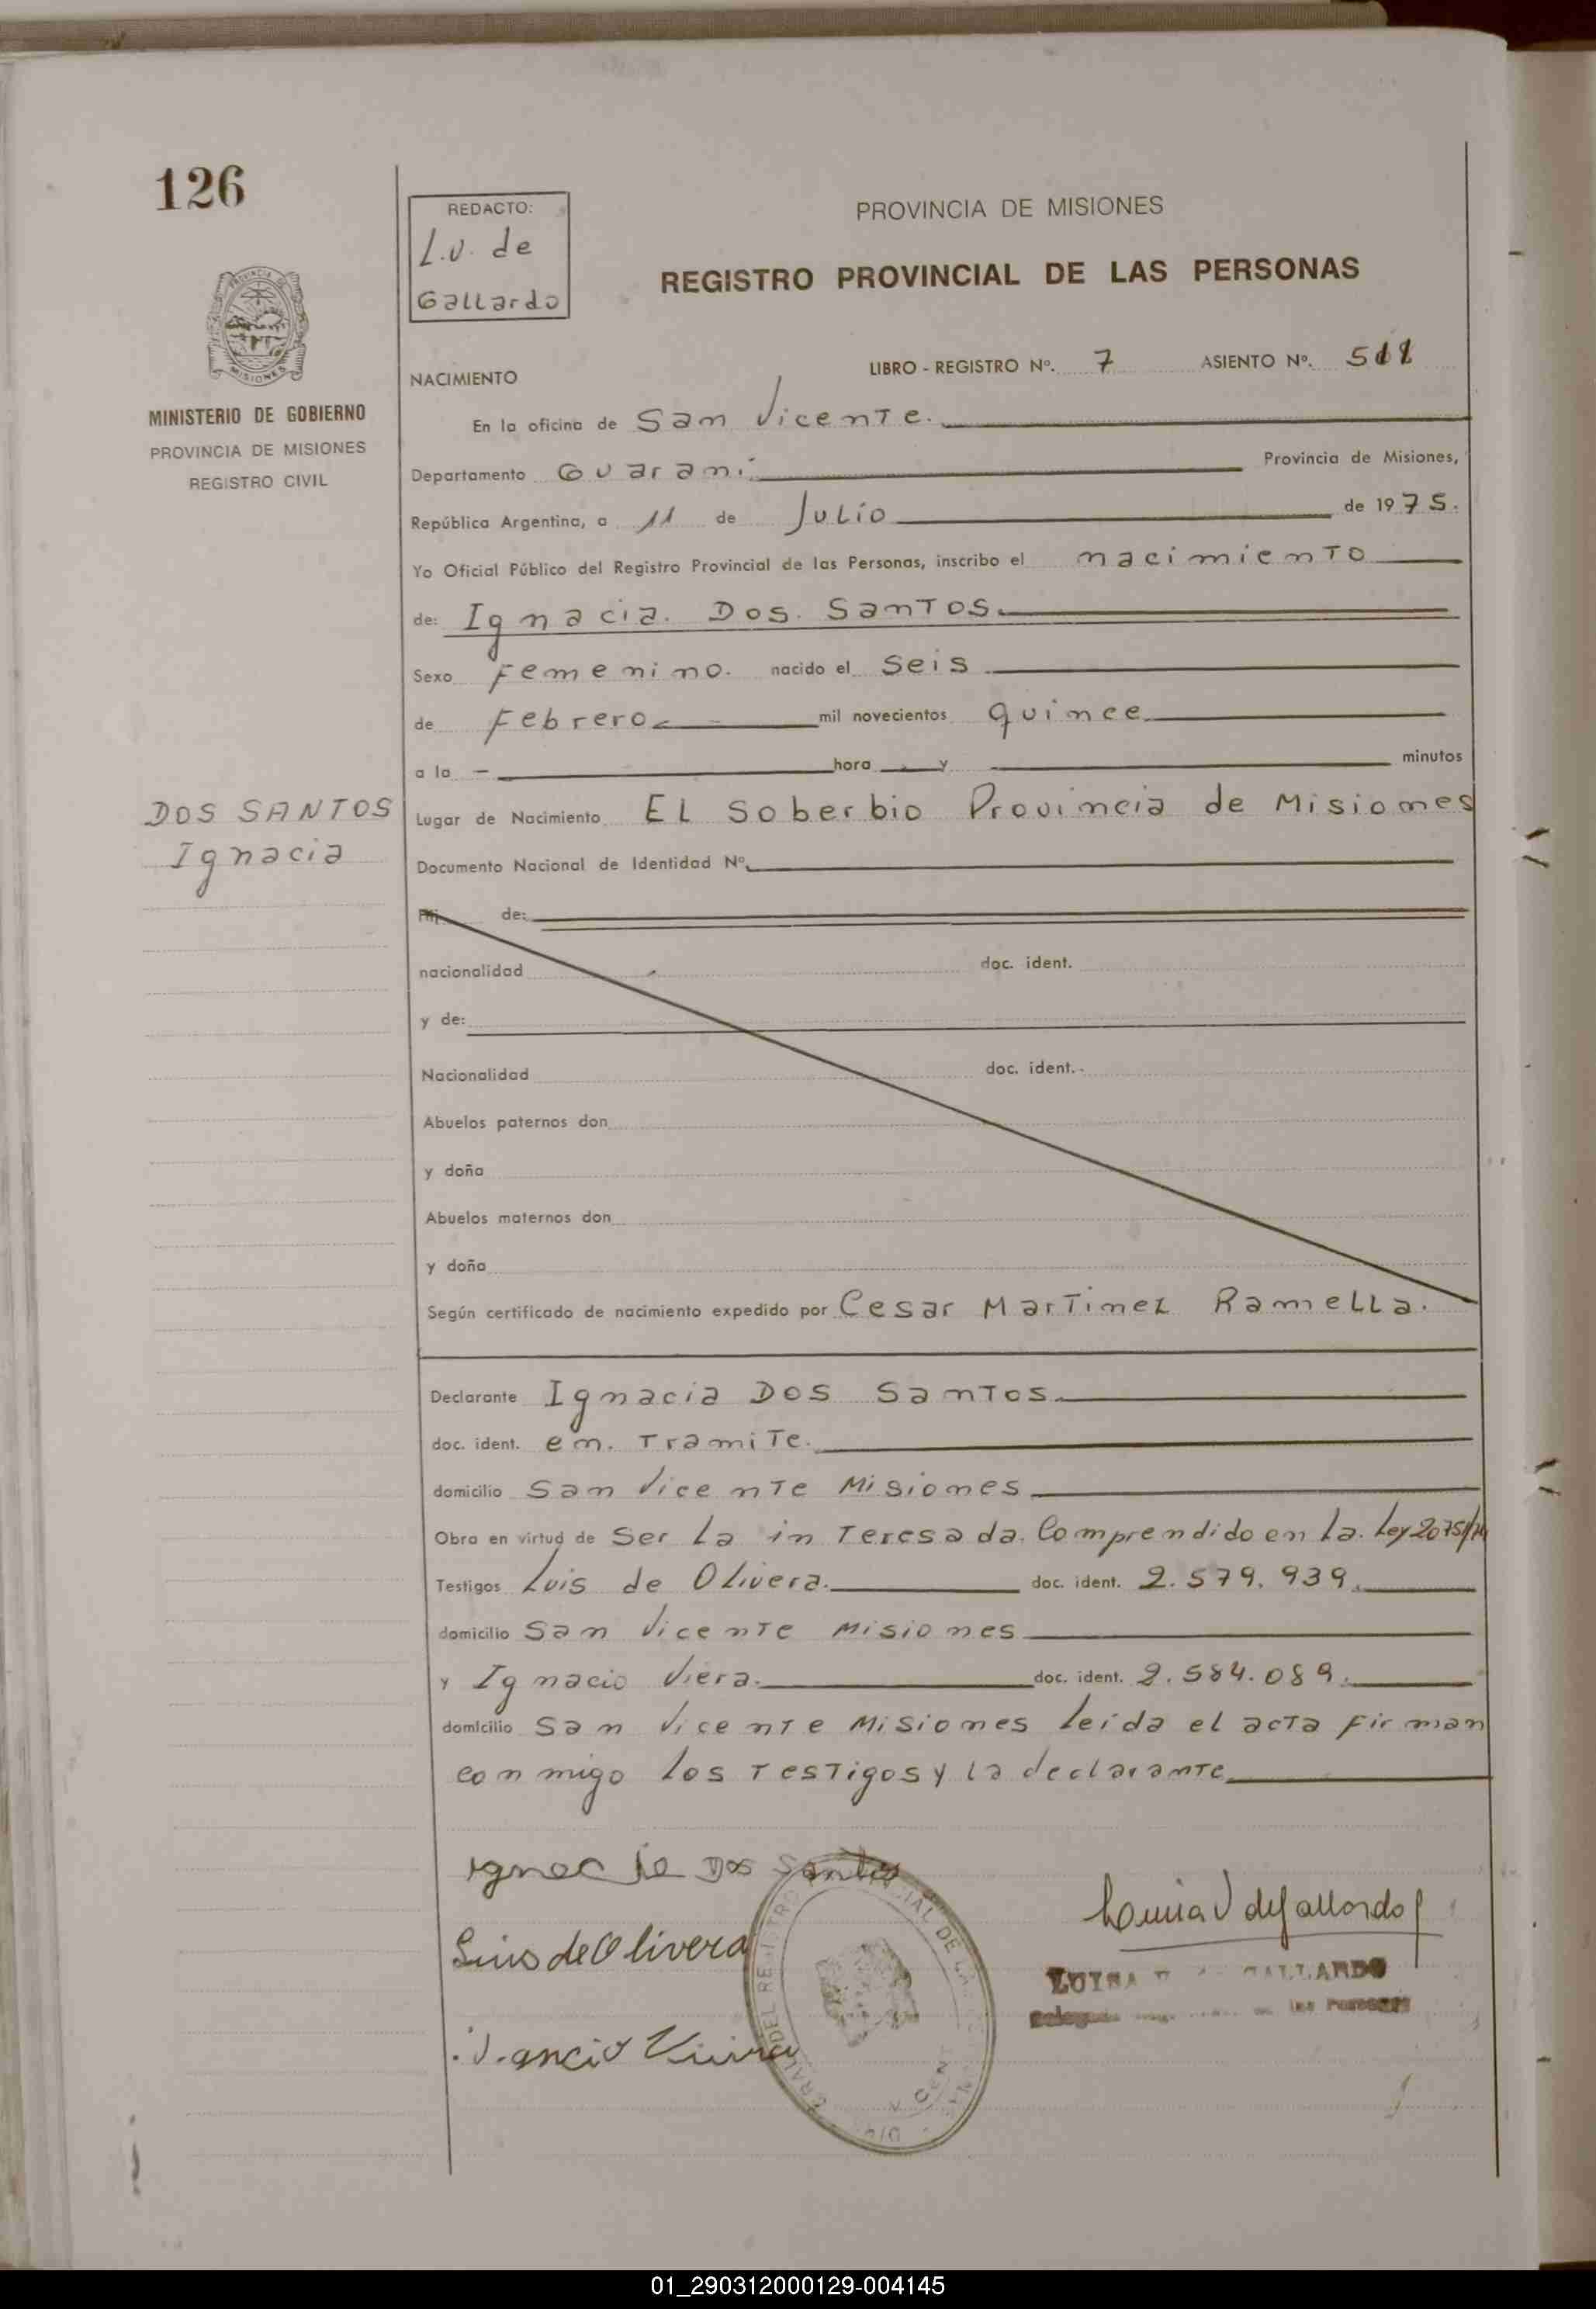 126
REDACTO:
L.V. de
Gallardo
PROVINCIA DE MISIONES
REGISTRO PROVINCIAL DE LAS PERSONAS
PROVINCIA
MISIONES
MINISTERIO DE GOBIERNO
PROVINCIA DE MISIONES
REGISTRO CIVIL
NACIMIENTO
LIBRO - REGISTRO Nº. 7 ASIENTO Nº.
En la oficina de San Vicente.
Departamento Guarani Provincia de Misiones,
República Argentina, a 11 de Julio de 1975.
Yo Oficial Público del Registro Provincial de las Personas, inscribo el nacimiento
de: Ignacia. Dos. Santos.
Sexo Femenino. nacido el Seis
de Febrero mil novecientos quince
a la - hora y minutos
DOS SANTOS
Ignacia
Lugar de Nacimiento El Soberbio Provincia de Misiones
Documento Nacional de Identidad Nº
Hij de:
nacionalidad doc. ident.
y de:
Nacionalidad doc. ident.
Abuelos paternos don
y doña
Abuelos maternos don
y doña
Según certificado de nacimiento expedido por Cesar Martinez Ramella.
Declarante Ignacia Dos Santos
doc. ident. en. Tramite.
domicilio San Vicente Misiones
Obra en virtud de Ser la interesada. Comprendido en la. Ley 2075/
Testigos Luis de Olivera. doc. ident. 2.579.939.
domicilio San Vicente Misiones
y Ignacio Viera. doc. ident. 2.584.089.
domicilio San Vicente Misiones leida el acta firman
conmigo los Testigos y la declarante
Ignacia Dos Santos
Luis de Olivera
V de Gallardo
LUISA GALLARDO
DEL REGISTRO
01_290312000129-004145